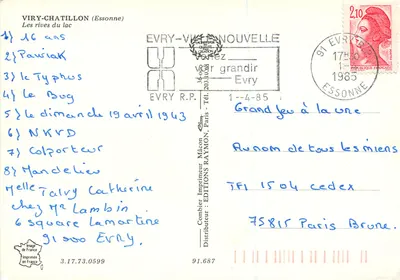 VIRY-CHATILLON (Essonne)
Les rives du lac
1) 16 ans
2) Pawiak
3) le Typhus
4) Le Bug
5) le dimanche 19 avril 1943
6) NKVD
7) Colporteur
8) Mandelieu
Melle Talvy Catherine
chez Mr Lambin
6 square Lamartine
91000 EVRY.
3.17.73.0599
91.687
Combier Imprimeur Mâcon
Distributeur : EDITIONS RAYMON, Paris - Tél.
EVRY-VILLE NOUVELLE
Venez
grandir
Evry
EVRY R.P.
1-4-85
91 EVRY
17H
1985
ESSONNE
2,10
Grand jeu à la une
Au nom de tous les miens
TF1 1504 cedex
75815 Paris Brune.